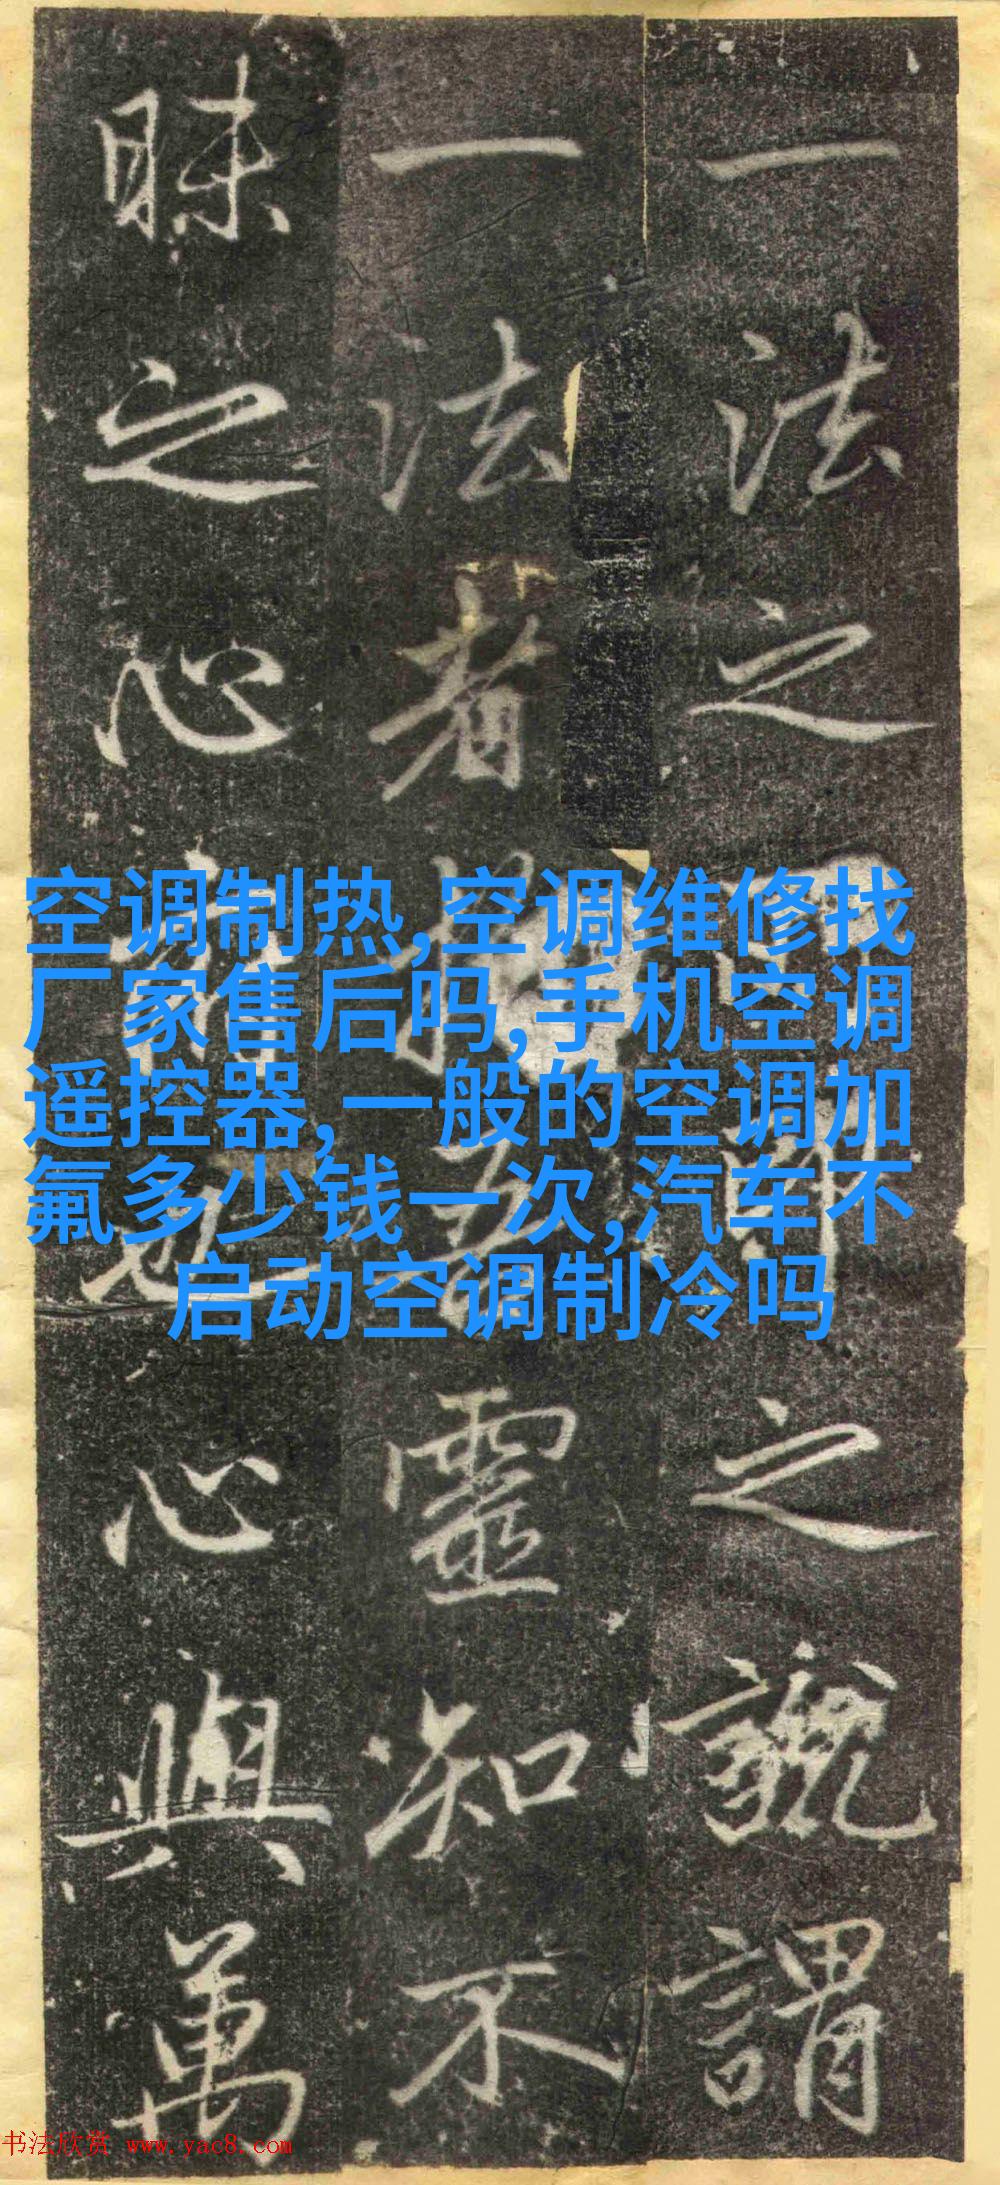 一法之之謂
一法者靈知不
昧之心也心與萬
空调制热,空调维修找
厂家售后吗,手机空调
遥控器,一般的空调加
氟多少钱一次,汽车不
启动空调制冷吗
书法欣赏 www.yac8.com